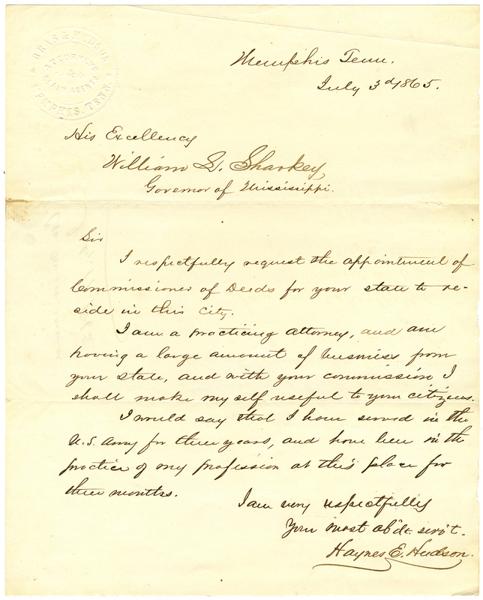 ATTORNEYS
MEMPHIS, TENN.
Memphis Tenn.
July 3d 1865.
His Excellency
William L. Sharkey,
Governor of Mississippi.
Sir
I respectfully request the appointment of
Commissioner of Deeds for your state to re-
side in this city.
I am a practicing attorney, and am
having a large amount of business from
your state, and with your commission I
shall make my self useful to your citizens.
I would say that I have served in the
U.S. Army for three years, and have been in the
practice of my profession at this place for
three months.
I am very respectfully
Your most ob'dt. serv't.
Haynes E. Hudson.